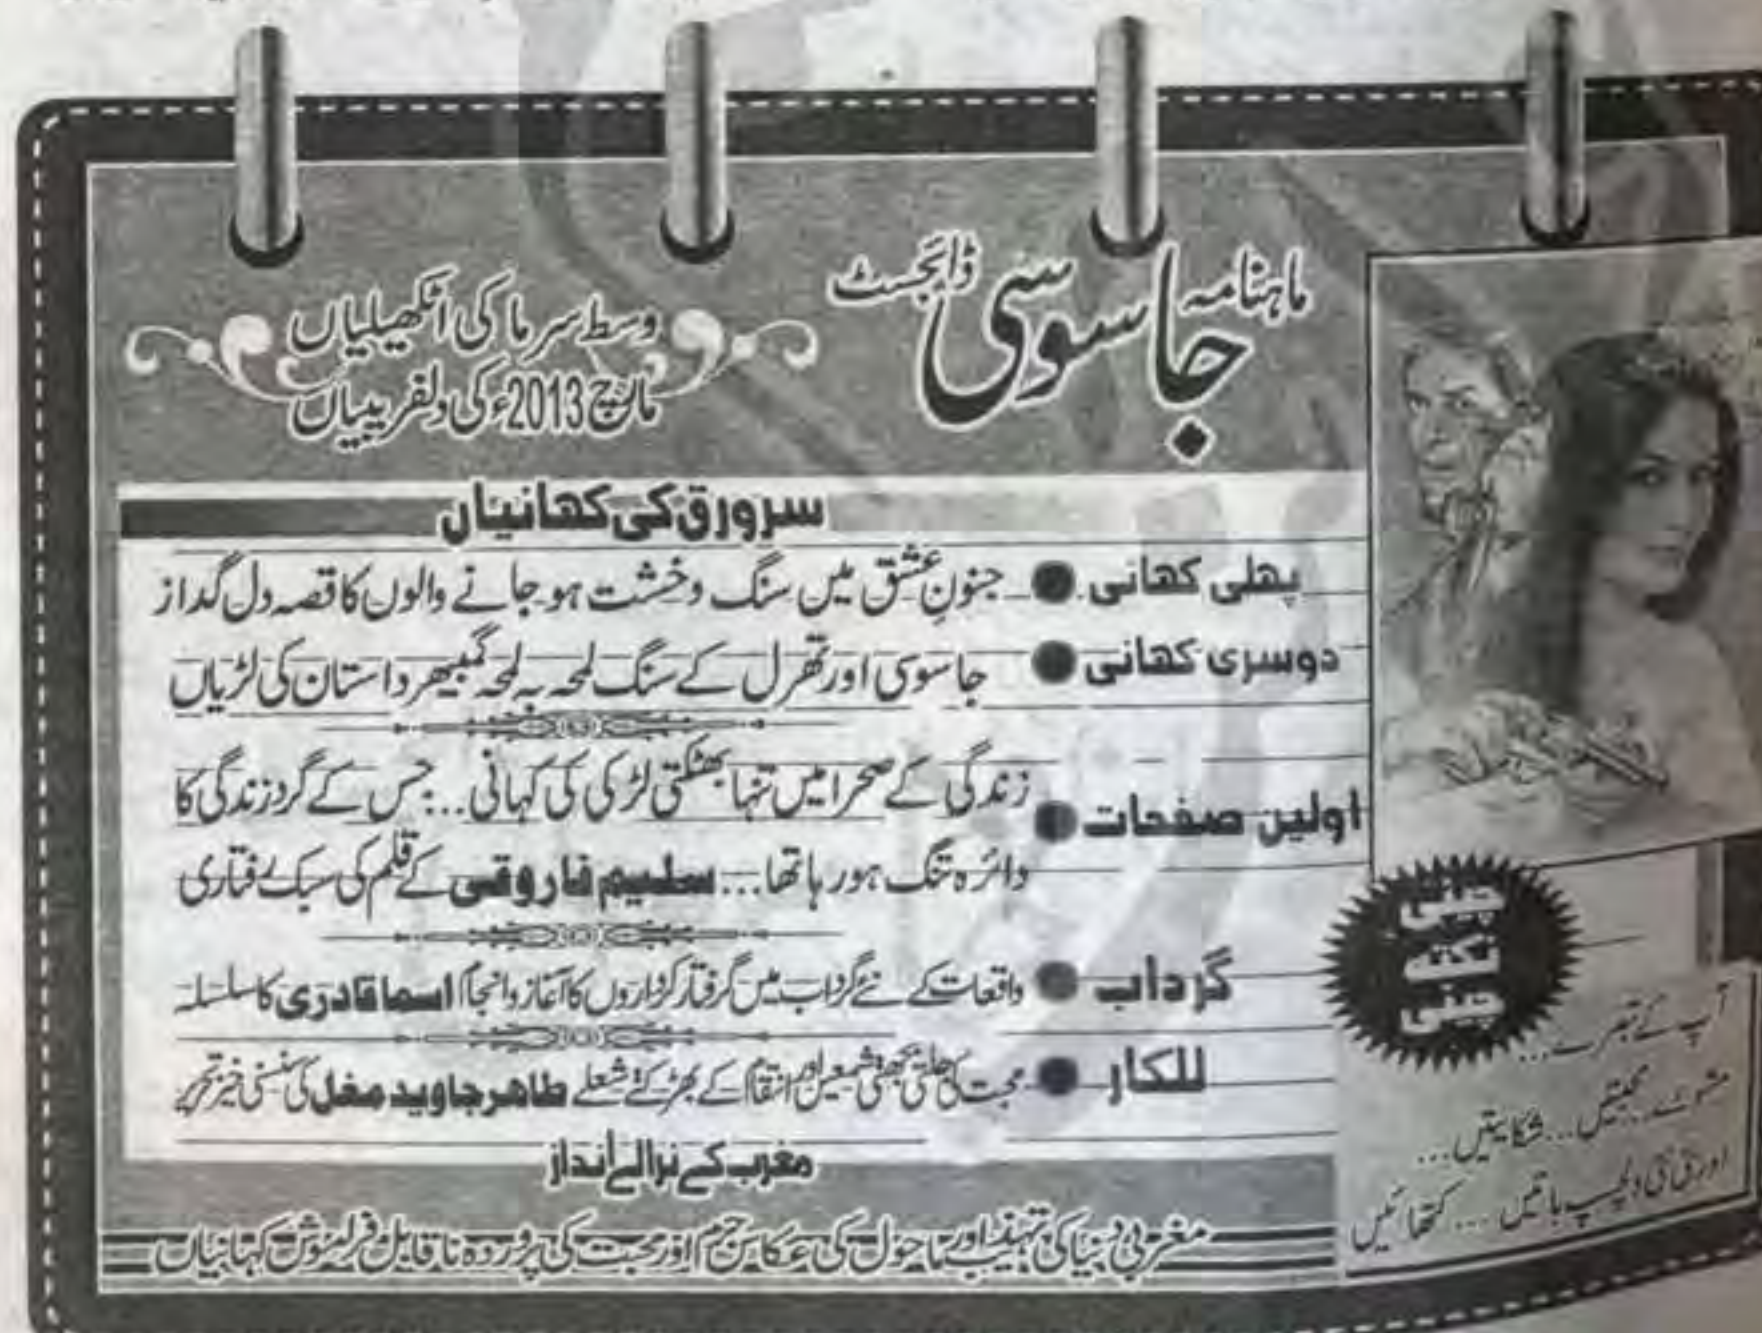 ماہنامہ جاسوسی ڈائجسٹ
وسط سرما کی اٹکھیلیاں
مارچ 2013ء کی دلفریبیاں
سرورق کی کہانیاں
پہلی کہانی ● جنونِ عشق میں سنگ و خشت ہو جانے والوں کا قصہ دل گداز
دوسری کہانی ● جاسوسی اور تھرل کے سنگ لمحہ بہ لمحہ گمبھیر داستان کی لڑیاں
اولین صفحات ● زندگی کے صحرا میں تنہا بھٹکتی لڑکی کی کہانی... جس کے گرد زندگی کا
دائرہ تنگ ہو رہا تھا... سلیم فاروقی کے قلم کی سبک رفتاری
گرداب ● واقعات کے نئے گرداب میں گرفتار کرداروں کا آغاز و انجام اسما قادری کا سلسلہ
للکار ● محبت کی جلتی بجھتی شمعیں اور انتقام کے بھڑکتے شعلے طاہر جاوید مغل کی سنسنی خیز تحریر
مغرب کے نرالے انداز
مغربی دنیا کی تہذیب اور ماحول کی عکاس جرم اور محبت کی پروردہ ناقابل فراموش کہانیاں
چینی
نکتہ
چینی
آپ کے تبصرے...
مشورے... محبتیں... شکایتیں...
اور نئی نئی دلچسپ باتیں... کتھائیں